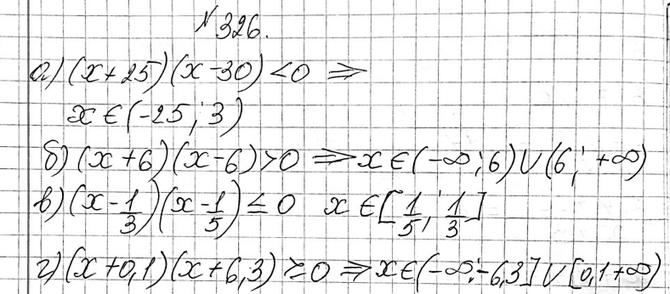 №326.
а) (x+25)(x-30)<0 ⇒
x∈(-25; 3)
б) (x+6)(x-6)>0 ⇒ x∈(-∞; 6)∪(6; +∞)
в) (x-1/3)(x-1/5)≤0 x∈[1/5; 1/3]
г) (x+0,1)(x+6,3)≥0 ⇒ x∈(-∞;-6,3]∪[0,1+∞)